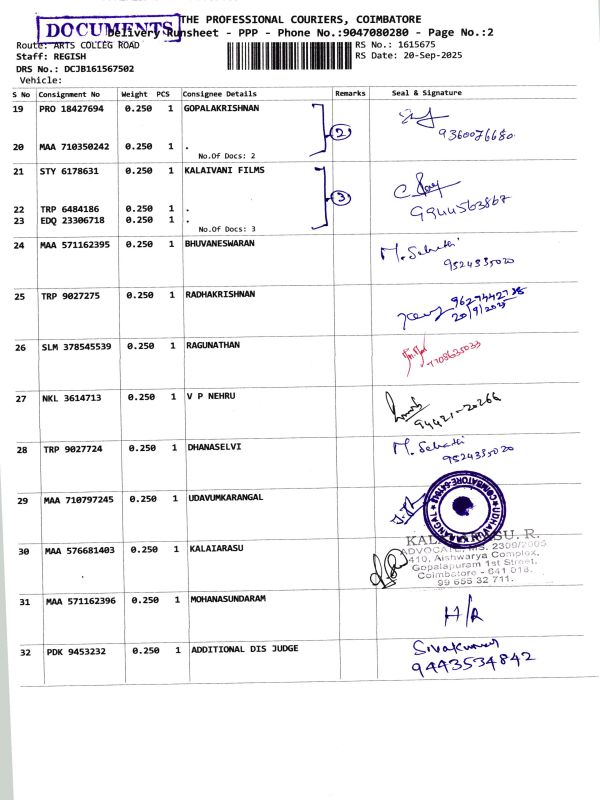 THE PROFESSIONAL COURIERS, COIMBATORE
DOCUMENTS
Delivery Runsheet - PPP - Phone No.:9047080280 - Page No.:2
Route: ARTS COLLEG ROAD RS No.: 1615675
Staff: REGISH RS Date: 20-Sep-2025
DRS No.: DCJB161567502
Vehicle:
S No Consignment No Weight PCS Consignee Details Remarks Seal & Signature
19 PRO 18427694 0.250 1 GOPALAKRISHNAN
2 9360076680
20 MAA 710350242 0.250 1 .
No.Of Docs: 2
21 STY 6178631 0.250 1 KALAIVANI FILMS
3 9944563867
22 TRP 6484186 0.250 1 .
23 EDQ 23306718 0.250 1 .
No.Of Docs: 3
24 MAA 571162395 0.250 1 BHUVANESWARAN
9524335020
25 TRP 9027275 0.250 1 RADHAKRISHNAN
20/9/2025
26 SLM 378545539 0.250 1 RAGUNATHAN
7708635033
27 NKL 3614713 0.250 1 V P NEHRU
94421-20266
28 TRP 9027724 0.250 1 DHANASELVI
9524335020
29 MAA 710797245 0.250 1 UDAVUMKARANGAL
30 MAA 576681403 0.250 1 KALAIARASU
R.
ADVOCATE, MS. 2309/2005
410, Aishwarya Complex,
Gopalapuram 1st Street,
Coimbatore - 641 018.
99 655 32 711.
31 MAA 571162396 0.250 1 MOHANASUNDARAM
H/R
32 PDK 9453232 0.250 1 ADDITIONAL DIS JUDGE
Sivakumar
9443534842